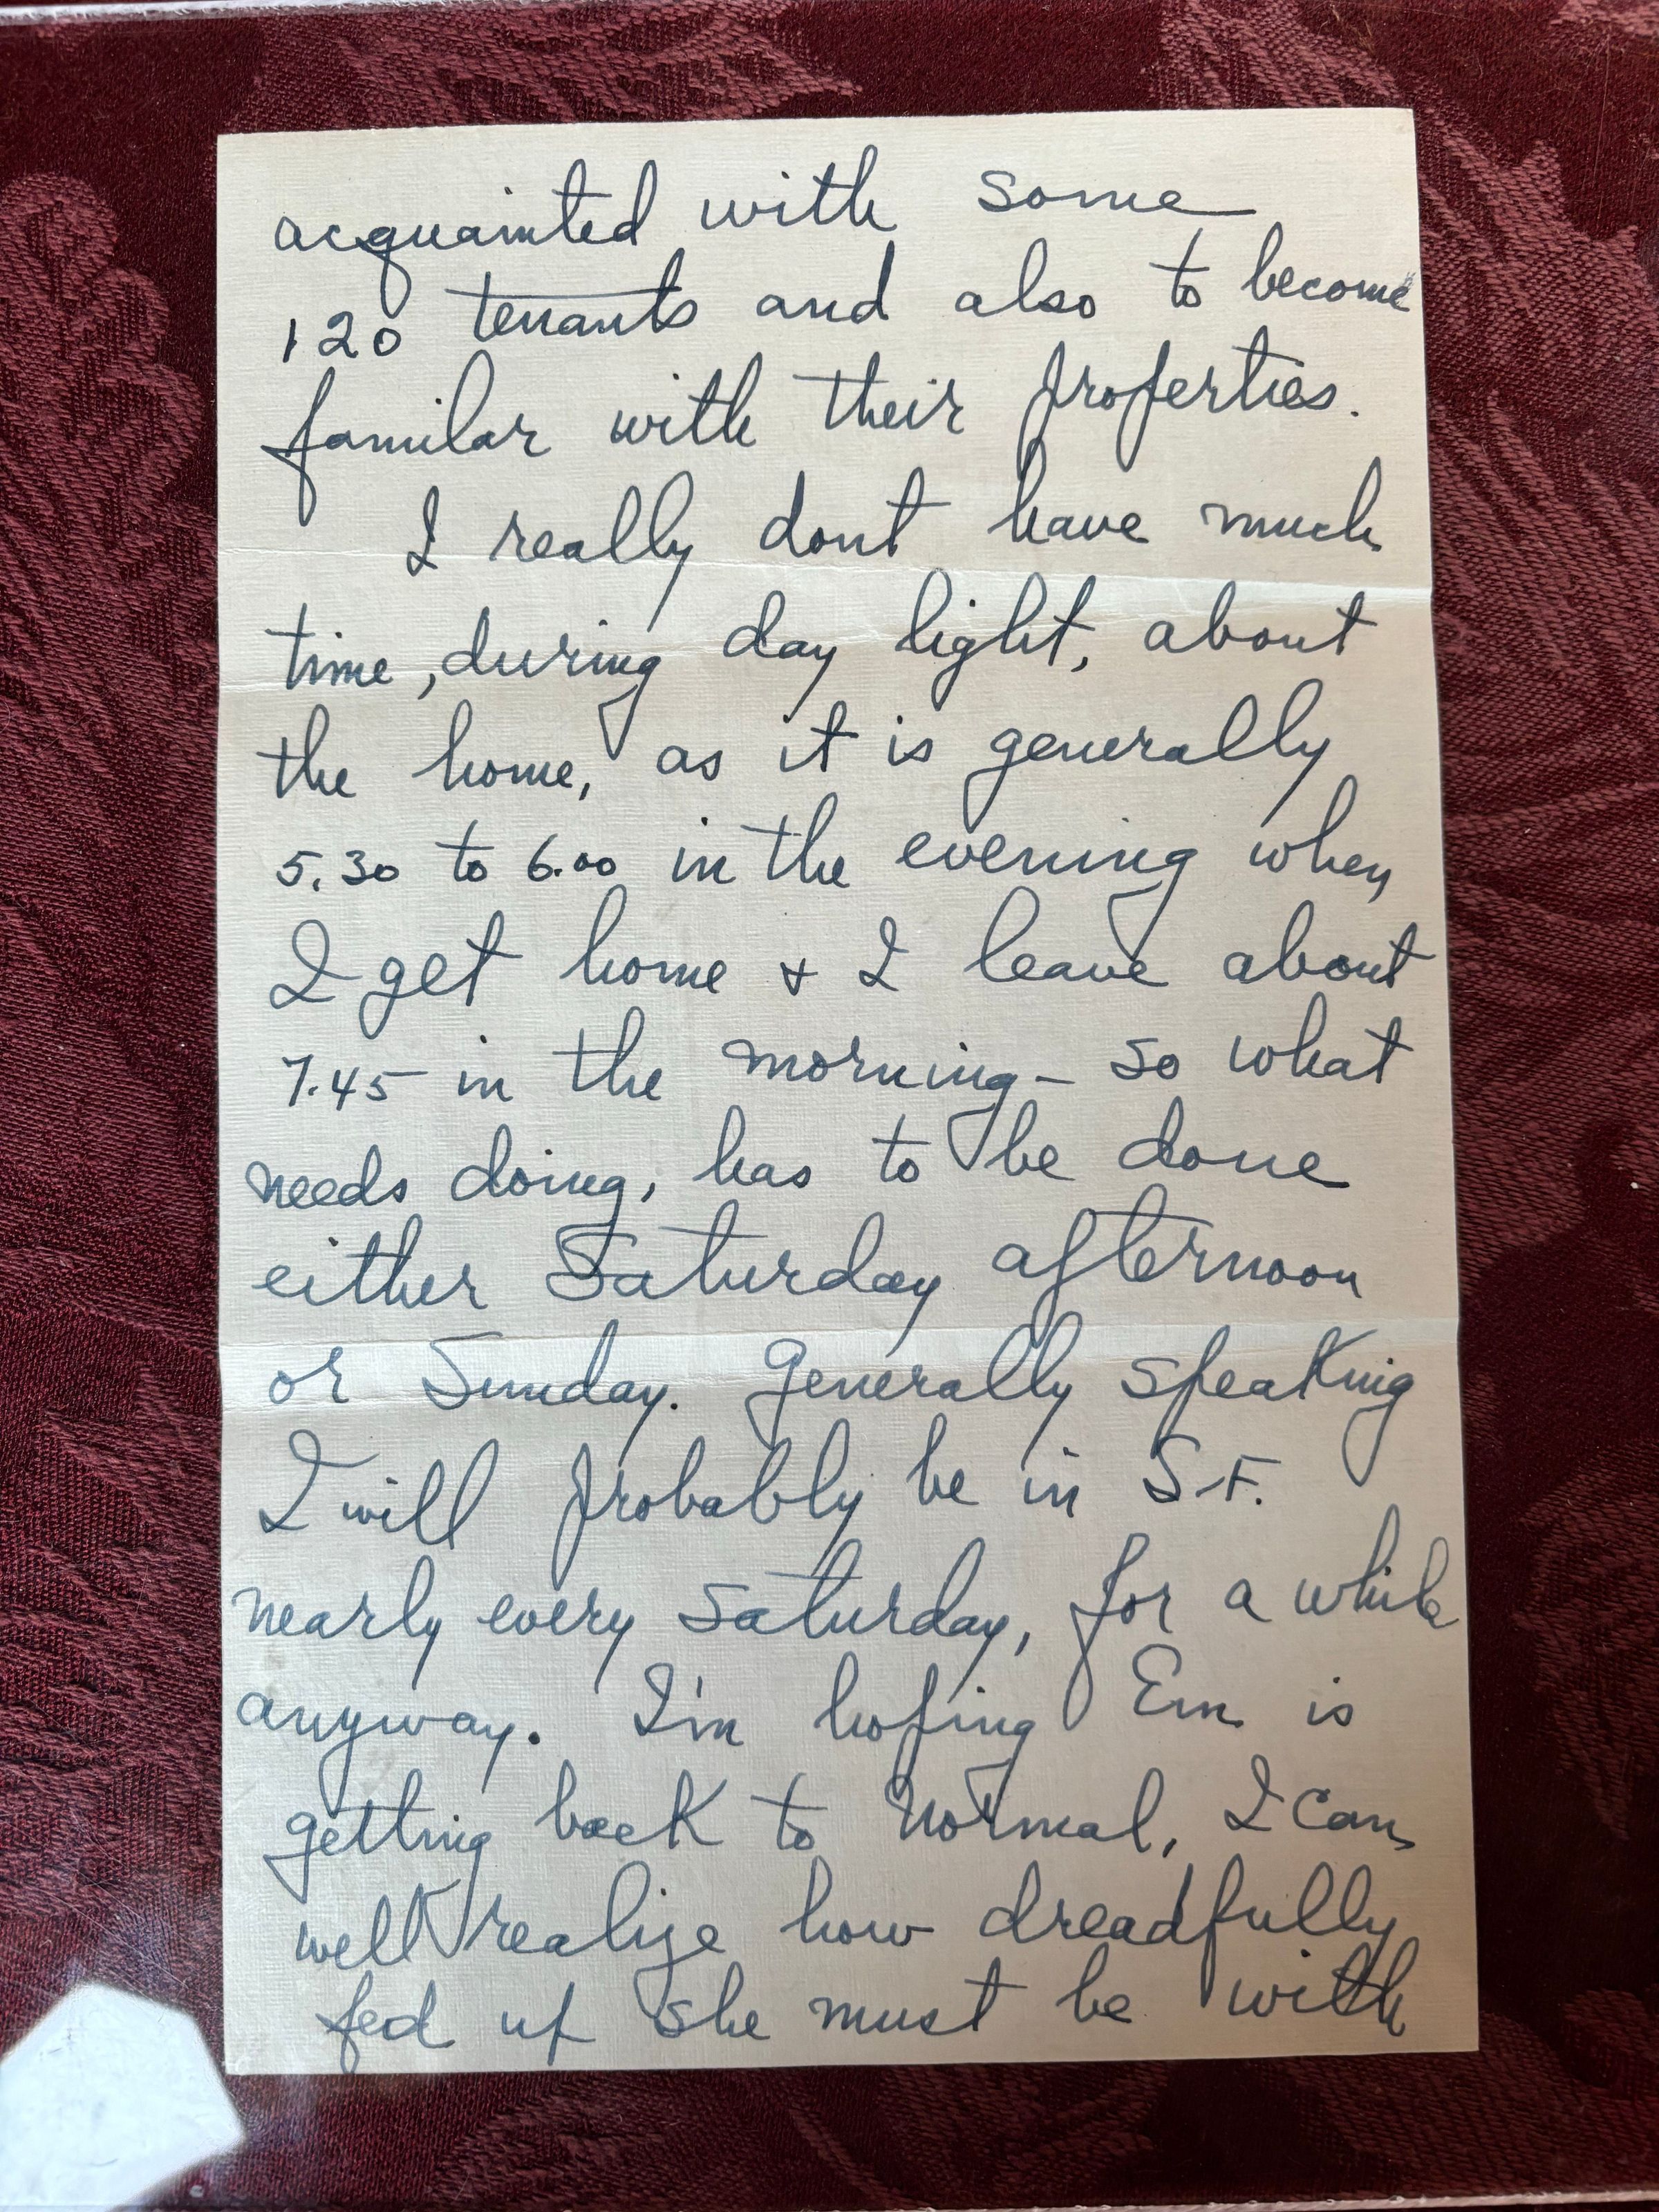 acquainted with some
120 tenants and also to become
familar with their properties.
I really dont have much
time, during day light, about
the home, as it is generally
5.30 to 6.00 in the evening when
I get home + I leave about
7.45 in the morning - so what
needs doing, has to be done
either Saturday afternoon
or Sunday. Generally speaking
I will probably be in S.F.
nearly every Saturday, for a while
anyway. I'm hoping Em is
getting back to normal, I can
well realize how dreadfully
fed up she must be with